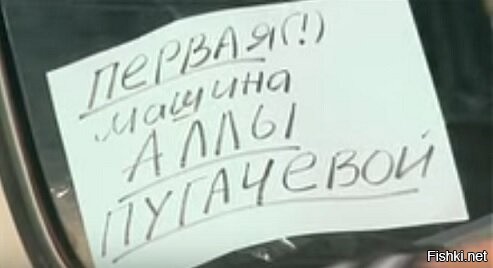 ПЕРВАЯ(!)
машина
АЛЛЫ
ПУГАЧЕВОЙ
Fishki.net